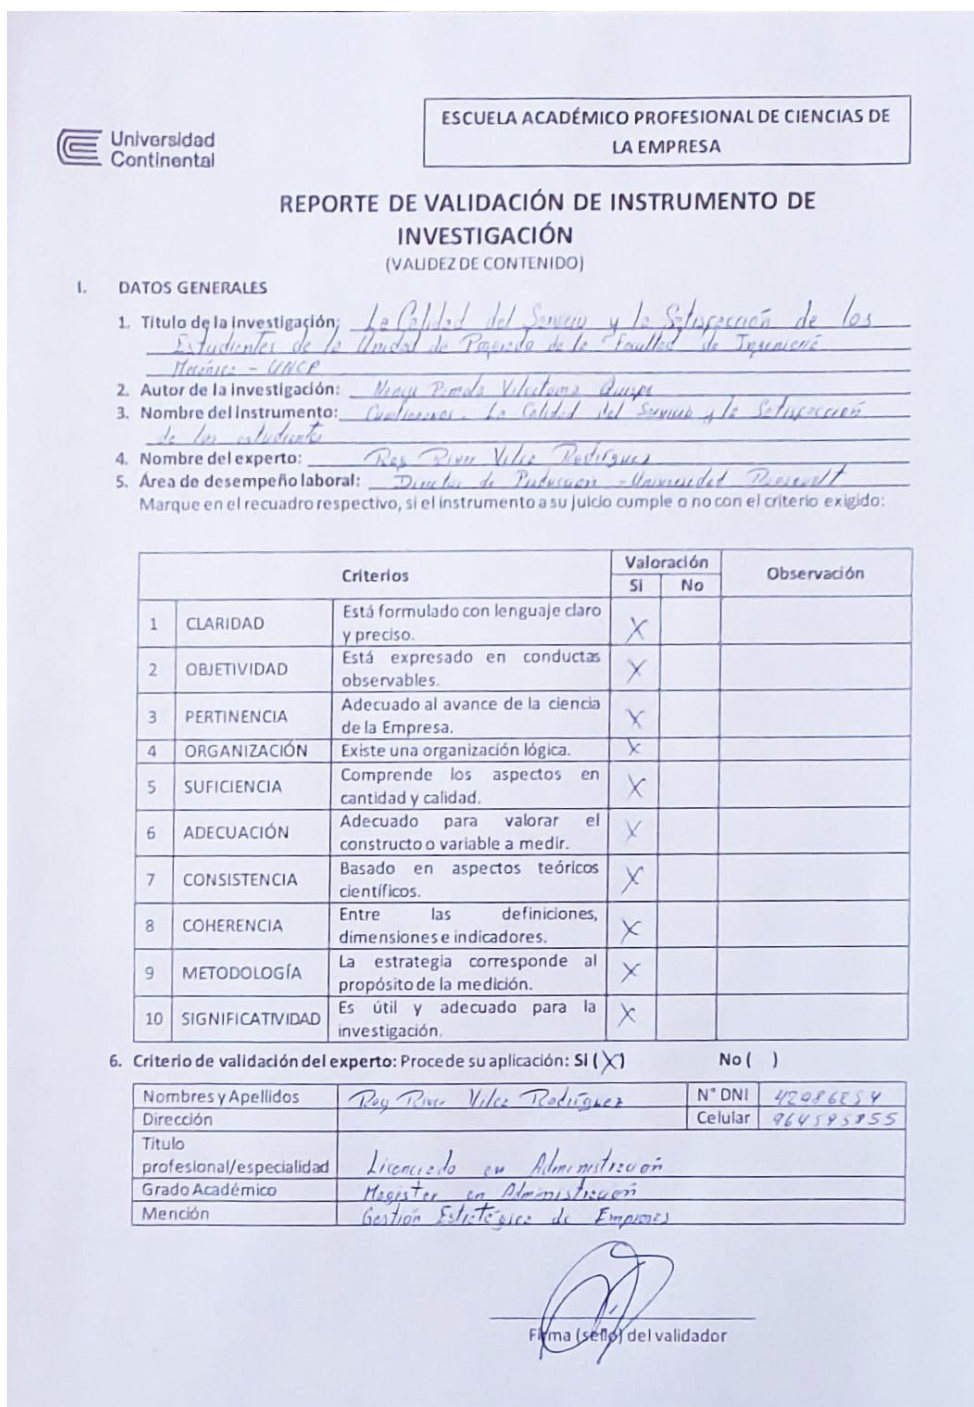 Universidad
Continental
ESCUELA ACADÉMICO PROFESIONAL DE CIENCIAS DE
LA EMPRESA
REPORTE DE VALIDACIÓN DE INSTRUMENTO DE
INVESTIGACIÓN
(VALIDEZ DE CONTENIDO)
I. DATOS GENERALES
1. Titulo de la investigación: La Calidad del Servicio y la Satisfacción de los
Estudiantes de la Unidad de Posgrado de la Facultad de Ingeniería
Mecánica - UNCP
2. Autor de la investigación: Quispe
3. Nombre del instrumento: La Calidad del Servicio y la Satisfacción
de los estudiantes
4. Nombre del experto: Roy River Vilca Rodríguez
5. Área de desempeño laboral: Director de - Universidad Roosevelt
Marque en el recuadro respectivo, si el instrumento a su juicio cumple o no con el criterio exigido:
Criterios Valoración Observación
Si No
1 CLARIDAD Está formulado con lenguaje claro
y preciso. X
2 OBJETIVIDAD Está expresado en conductas
observables. X
3 PERTINENCIA Adecuado al avance de la ciencia
de la Empresa. X
4 ORGANIZACIÓN Existe una organización lógica. X
5 SUFICIENCIA Comprende los aspectos en
cantidad y calidad. X
6 ADECUACIÓN Adecuado para valorar el
constructo o variable a medir. X
7 CONSISTENCIA Basado en aspectos teóricos
científicos. X
8 COHERENCIA Entre las definiciones,
dimensiones e indicadores. X
9 METODOLOGÍA La estrategia corresponde al
propósito de la medición. X
10 SIGNIFICATIVIDAD Es útil y adecuado para la
investigación. X
6. Criterio de validación del experto: Procede su aplicación: Si (X) No ( )
Nombres y Apellidos Roy River Vilca Rodríguez N° DNI
Dirección Celular
Titulo
profesional/especialidad Licenciado en Administración
Grado Académico Magister en Administración
Mención Gestión Estratégica de Empresas
Firma (sello) del validador